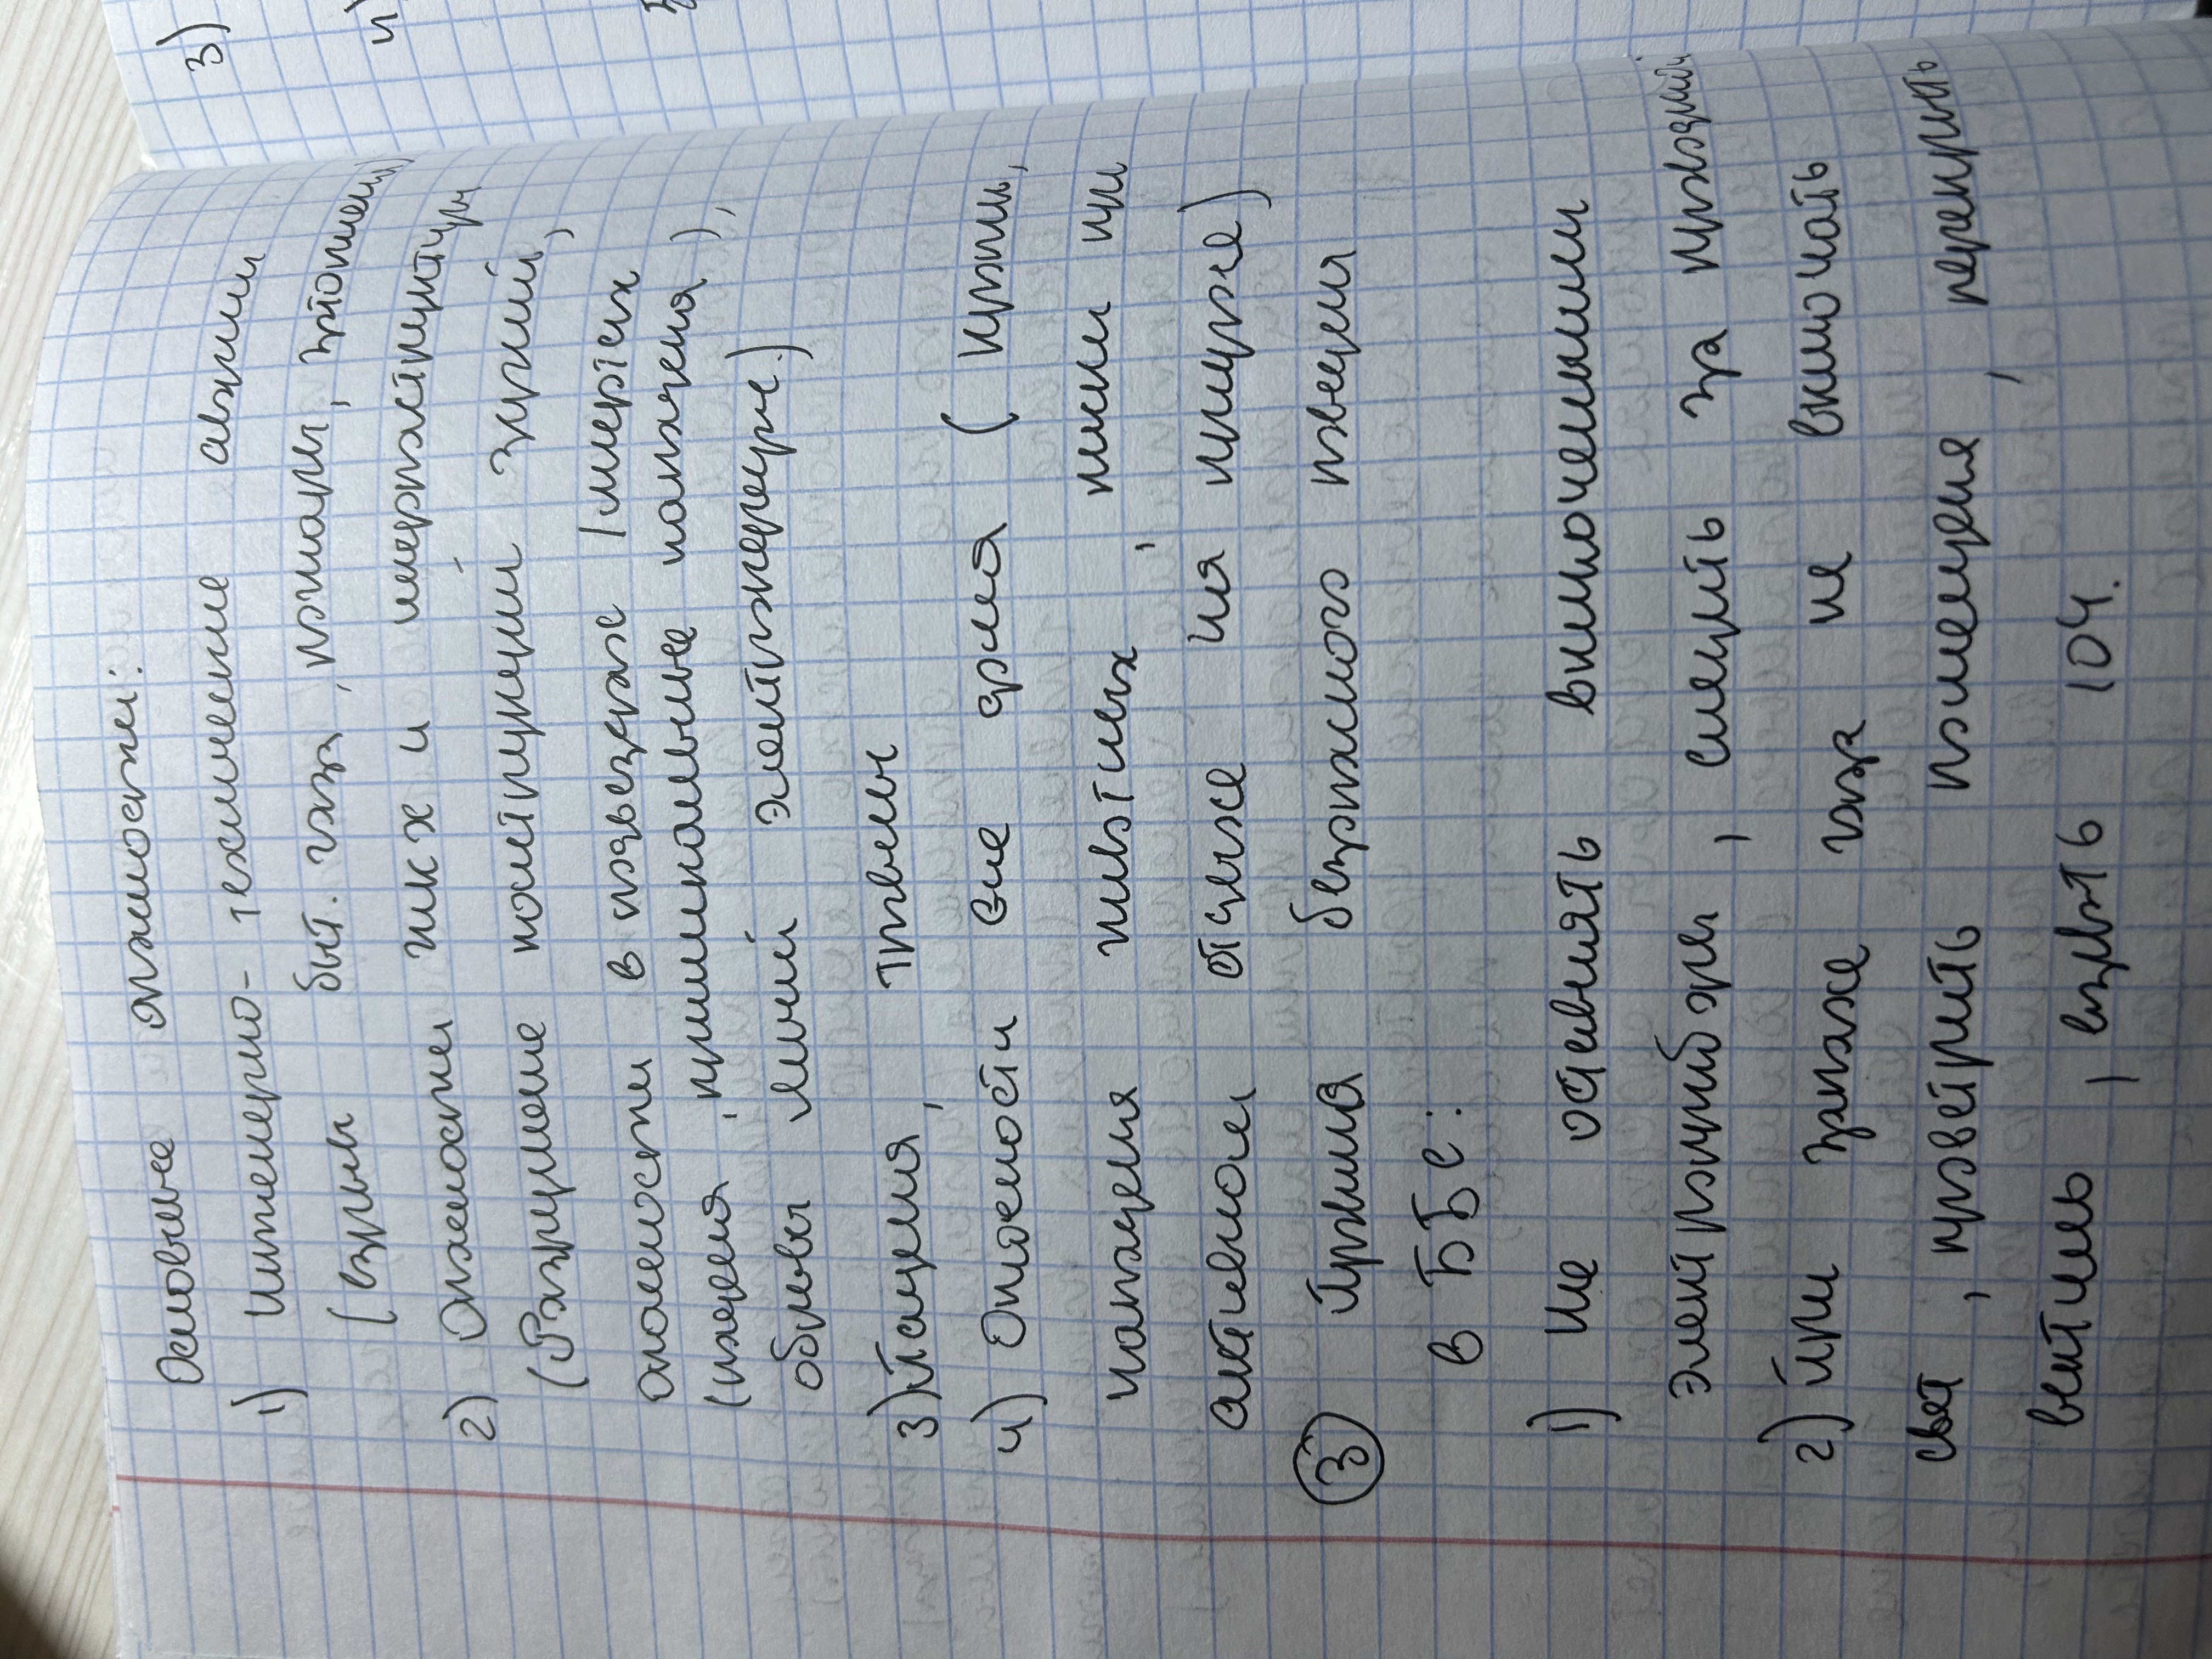 Основные опасности:
1) Инженерно-технические аварии
(взрывы быт. газа, пожары, затопления)
2) Опасности ЖКХ и инфраструктуры
(Разрушение конструкций зданий,
опасности в подъездах
(падения, криминальные нападения),
обрывы линий электропередач.)
3) Падения, травмы
4) Опасности вне дома (кражи,
нападения животных,
активном отдыхе)
③ Правила безопасного поведения
в ББС:
1) Не оставлять включенными
электроприборы, следить за проводкой
2) При запахе газа не включать
свет, проветрить помещения, перекрыть
вентиль, вызвать 104.
3)
4)